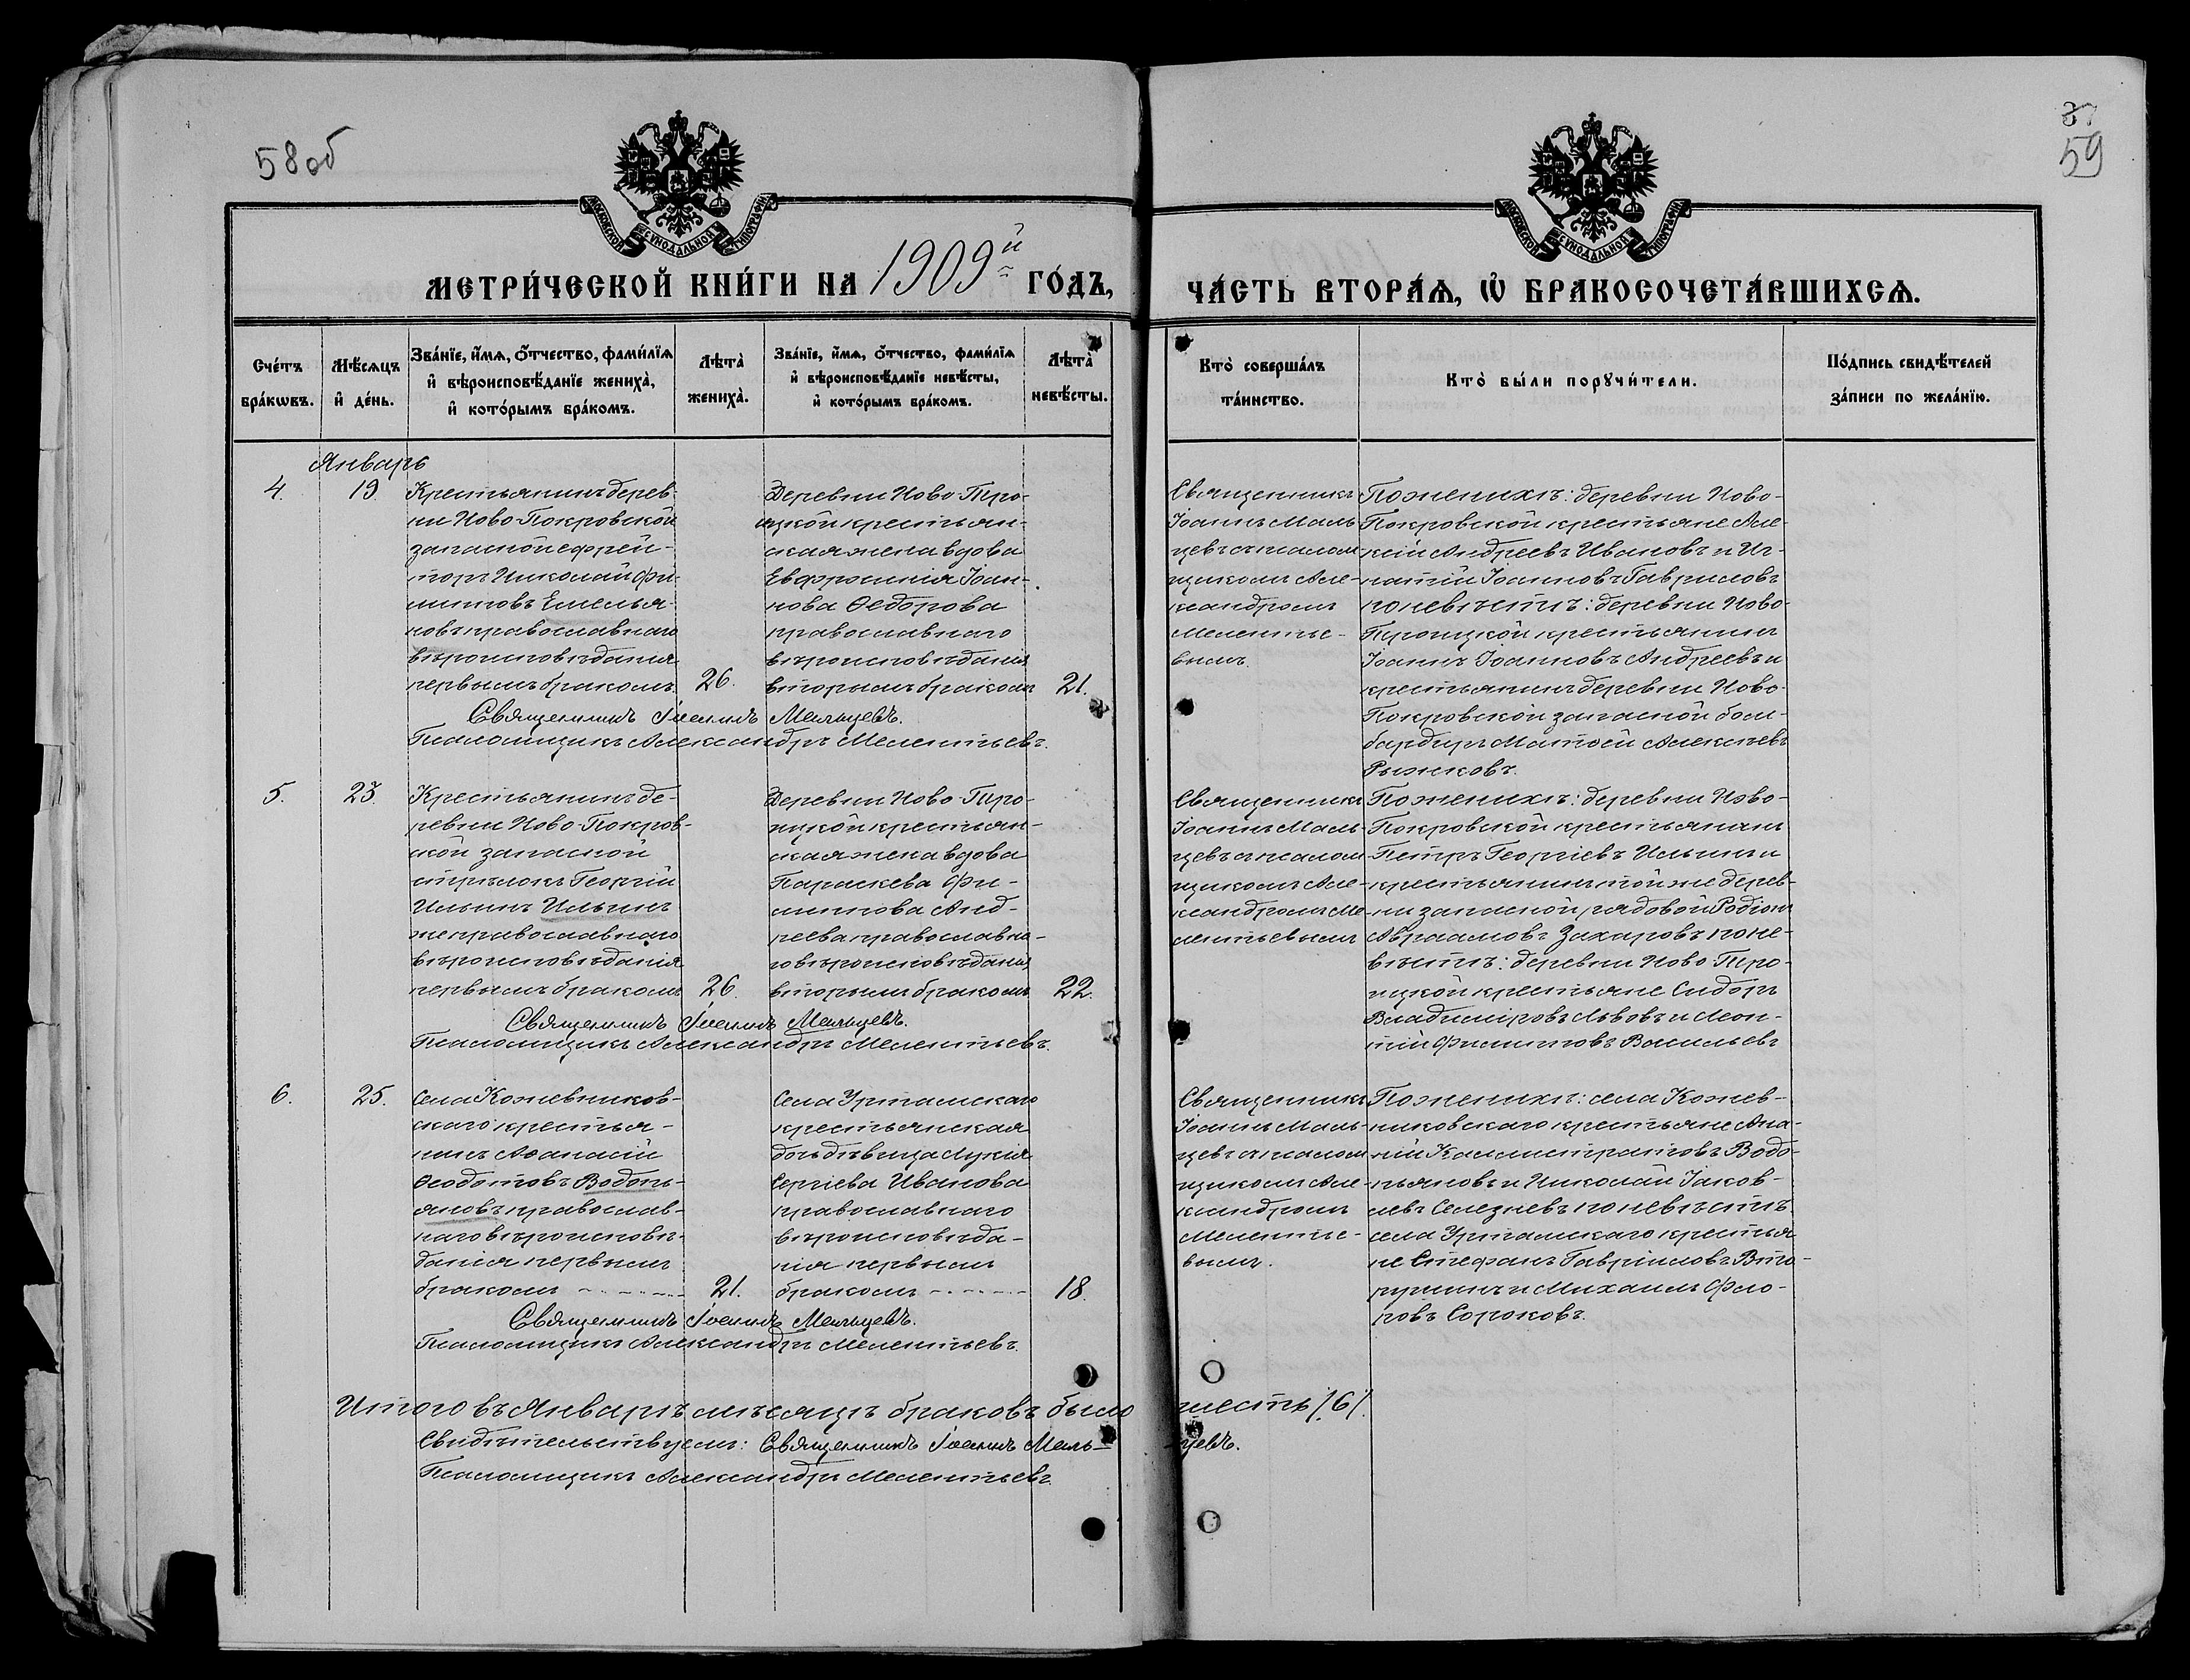 58 об
59
МОСКОВСКОЙ СѴНОДАЛЬНОЙ ТИПОГРАФІИ
МОСКОВСКОЙ СѴНОДАЛЬНОЙ ТИПОГРАФІИ
МЕТРИ́ЧЕСКОЙ КНИ́ГИ НА 1909й ГО́ДЪ,
ЧА́СТЬ ВТОРА́Ѧ, Ѡ҆ БРАКОСОЧЕТА́ВШИХСѦ.
Сче́тъ бра́кѡвъ.
Мѣ́сѧцъ и҆ де́нь.
Зва́нїе, и҆́мѧ, ѻ҆́тчество, фами́лїѧ
и҆ вѣроисповѣ́данїе жениха̀,
и҆ кото́рымъ бра́комъ.
Лѣта̀ жениха̀.
Зва́нїе, и҆́мѧ, ѻ҆́тчество, фами́лїѧ
и҆ вѣроисповѣ́данїе невѣ́сты,
и҆ кото́рымъ бра́комъ.
Лѣта̀ невѣ́сты.
Кто̀ соверша́лъ
та́инство.
Кто̀ бы́ли порꙋчи́тели.
По́дпись свидѣ́телей
за́писи по жела́нїю.
Январь
4.
19.
Крестьянинъ дерев-
ни Ново-Покровской
запасной ефрей-
торъ Николай Фи-
липповъ Емелья-
новъ православнаго
вѣроисповѣданія
первымъ бракомъ.
26.
Деревни Ново-Тро-
ицкой крестьян-
ская жена вдова
Евфросинія Іоан-
нова Ѳедорова
православнаго
вѣроисповѣданія
вторымъ бракомъ
21.
Священникъ Іоаннъ Мальцевъ.
Псаломщикъ Александръ Мелентьевъ.
Священникъ
Іоаннъ Маль-
цевъ съ псалом-
щикомъ Але-
ксандромъ
Мелентье-
вымъ.
По женихѣ: деревни Ново-
Покровской крестьяне Але-
ксій Андреевъ Ивановъ и Иг-
натій Іоанновъ Гавриловъ
по невѣстѣ: деревни Ново-
Троицкой крестьянинъ
Іоаннъ Іоанновъ Андреевъ и
крестьянинъ деревни Ново-
Покровской запасной бом-
бардиръ Матвей Алексѣевъ
Рыжковъ.
5.
23.
Крестьянинъ де-
ревни Ново-Покров-
ской запасной
стрѣлокъ Георгій
Ильинъ Ильинъ
же православнаго
вѣроисповѣданія
первымъ бракомъ
26.
Деревни Ново-Тро-
ицкой крестьян-
ская жена вдова
Параскева Фи-
липпова Анд-
реева православна-
го вѣроисповѣданія
вторымъ бракомъ
22.
Священникъ Іоаннъ Мальцевъ.
Псаломщикъ Александръ Мелентьевъ.
Священникъ
Іоаннъ Маль-
цевъ съ псалом-
щикомъ Але-
ксандромъ Ме-
лентьевымъ
По женихѣ: деревни Ново-
Покровской крестьянинъ
Петръ Георгіевъ Ильинъ и
крестьянинъ той же дерев-
ни запасной рядовой Родіонъ
Авраамовъ Захаровъ по не-
вѣстѣ: деревни Ново-Тро-
ицкой крестьяне Сидоръ
Владиміровъ Львовъ и Леон-
тій Филипповъ Васильевъ
6.
25.
Села Кожевников-
скаго крестья-
нинъ Аѳанасій
Ѳеодотовъ Водопь-
яновъ православ-
наго вѣроисповѣ-
данія первымъ
бракомъ
21.
Села Уртамскаго
крестьянская
дочь дѣвица Лукія
Сергіева Иванова
православнаго
вѣроисповѣда-
нія первымъ
бракомъ
18.
Священникъ Іоаннъ Мальцевъ.
Псаломщикъ Александръ Мелентьевъ.
Священникъ
Іоаннъ Маль-
цевъ съ псалом-
щикомъ Але-
ксандромъ
Мелентье-
вымъ.
По женихѣ: села Кожев-
никовскаго крестьяне Ана-
ній Каллистратовъ Водо-
пьяновъ и Николай Іаков-
левъ Селезневъ по невѣстѣ:
села Уртамскаго крестья-
не Стефанъ Гавріиловъ Вто-
рушинъ и Михаилъ Фло-
ровъ Сороковъ.
Итого въ Январѣ мѣсяцѣ браковъ было шесть /6/.
Свидѣтельствуемъ: Священникъ Іоаннъ Маль-цевъ.
Псаломщикъ Александръ Мелентьевъ